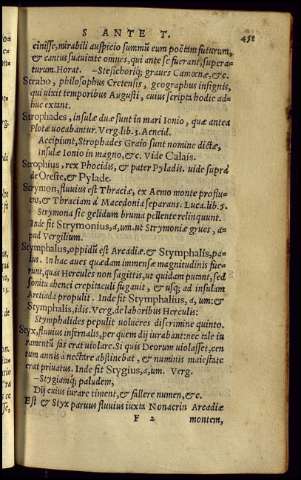 S ANTE T. 451
cinisse, mirabili auspicio summũ eum poëtam futurum,
& cantus suauitate omnes, qui ante se fuerant, supera-
turum. Horat. —Stesichoriq; graues Camœnæ, &c.
Strabo, philosophus Cretensis, geographus insignis,
qui vixit temporibus Augusti, cuius scripta hodie ad-
huc extant.
Strophades, insulæ duæ sunt in mari Ionio, quæ antea
Plotæ vocabantur. Verg. lib. 3. Aeneid.
Accipiunt, Strophades Graio sunt nomine dictæ,
Insulæ Ionio in magno, &c. Vide Calais.
Strophius, rex Phocidis, & pater Pyladis. vide supra
de Oreste, & Pylade.
Strymon, fluuius est Thraciæ, ex Aemo monte proflu-
, & Thraciam à Macedonia separans. Luca. lib. 5.
Strymona sic gelidum bruma pellente relinquunt.
Inde fit Strymonius, a, um. ut Strymoniæ grues, a-
pud Vergilium.
Stymphalus, oppidũ est Arcadiæ & Stymphalis, pa-
lus. In hac aues quædam immensæ magnitudinis fue-
runt, quas Hercules non sagittis, ut quidam putant, sed
sonitu ahenei crepitaculi fugauit, & usq; ad insulam
Aretiada propulit. Inde fit Stymphalius, a, um: &
Stymphalis, idis. Verg. de laboribus Herculis:
Stymphalides pepulit volucres discrimine quinto.
Styx, fluuius infernalis, per quem dij iurabant: nec tale iu-
ramentũ fas erat violare. Si quis Deorum violasset, cen
tum annis à nectare abstinebat, & numinis maiestate
erat priuatus. Inde fit Stygius, a, um. Verg.
—Stygiamq; paludem,
Dij cuius iurare timent, & fallere numen, &c.
Est & Styx paruus fluuius iuxta Nonacrin Arcadiæ
F 2 montem,